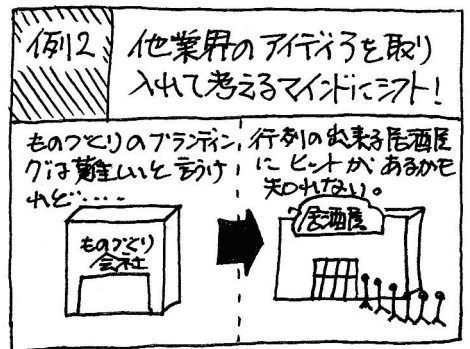 例2
他業界のアイディアを取り
入れて考えるマインドにシフト!
ものづくりのブランディン
グは難しいと言うけ
れど・・・・
ものづくり
会社
行列の出来る居酒屋
にヒントがあるかも
知れない。
居酒屋